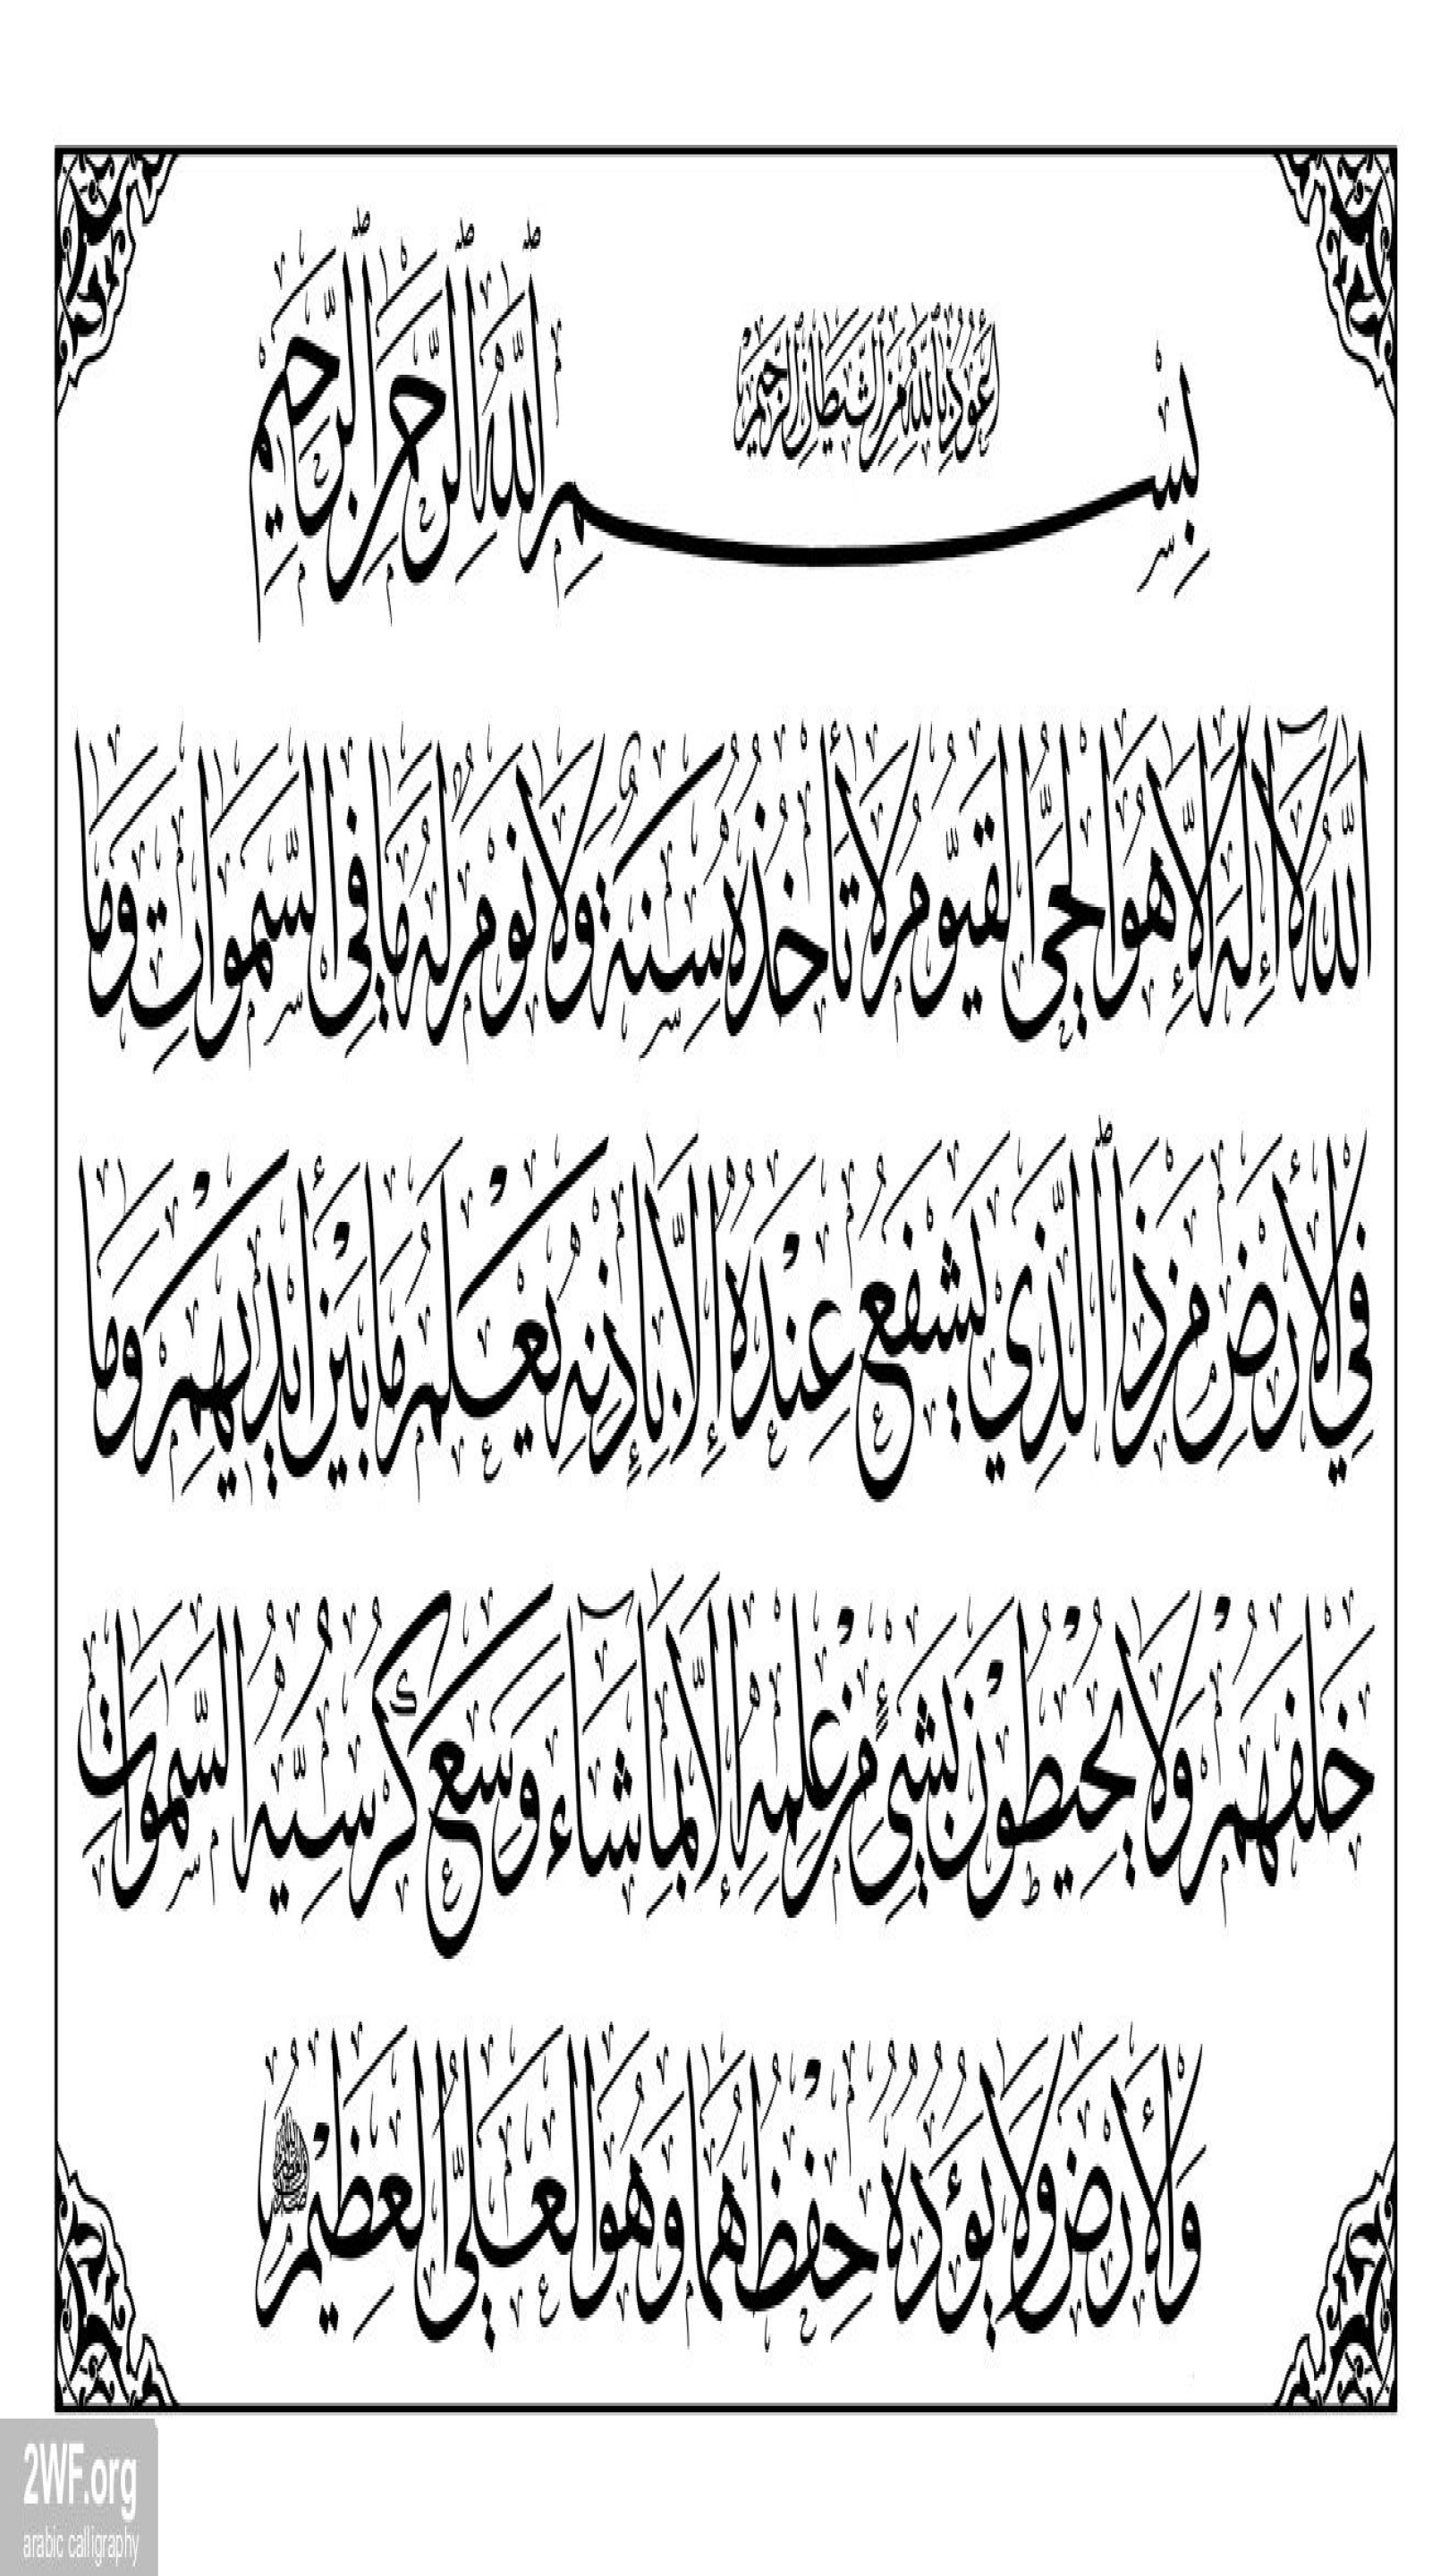 أَعُوذُ بِاللَّهِ مِنَ الشَّيْطَانِ الرَّجِيمِ
بِسْمِ اللَّهِ الرَّحْمٰنِ الرَّحِيمِ
اللَّهُ لَآ إِلٰهَ إِلَّا هُوَ الْحَيُّ الْقَيُّومُ لَا تَأْخُذُهُ سِنَةٌ وَلَا نَوْمٌ لَهُ مَا فِي السَّمٰوَاتِ وَمَا
فِي الْأَرْضِ مَنْ ذَا الَّذِي يَشْفَعُ عِنْدَهُ إِلَّا بِإِذْنِهِ يَعْلَمُ مَا بَيْنَ أَيْدِيهِمْ وَمَا
خَلْفَهُمْ وَلَا يُحِيطُونَ بِشَيْءٍ مِنْ عِلْمِهِ إِلَّا بِمَا شَآءَ وَسِعَ كُرْسِيُّهُ السَّمٰوَاتِ
وَالْأَرْضَ وَلَا يَؤُدُهُ حِفْظُهُمَا وَهُوَ الْعَلِيُّ الْعَظِيمُ
2WF.org
arabic calligraphy